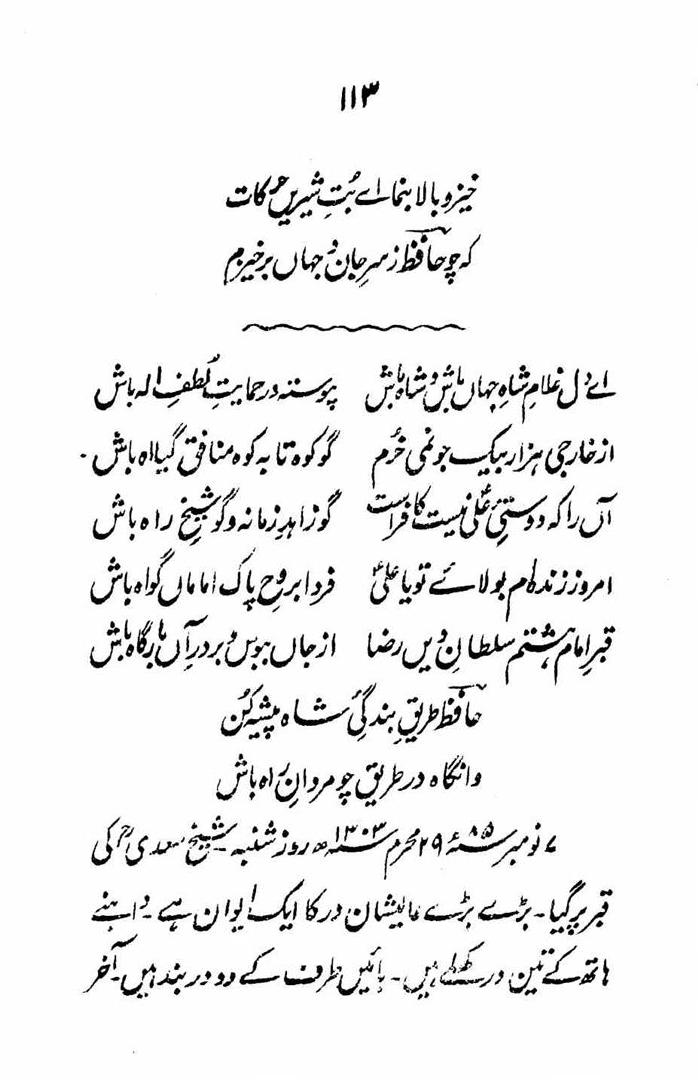 ۱۱۳
خیز و بالا بنما اے بُتِ شیریں حرکات
کہ چو حافظؔ ز سرِ جان و جہاں بر خیزم
اے دل غلامِ شاہِ جہاں باش و شاہ باش پیوستہ در حمایتِ لُطفِ الہ باش
از خارجی ہزار بیک جو نمی خرم گو کوہ تا بہ کوہ منافق گیا اہ باش۔
آں را کہ دوستیِٔ علیؑ نیست کافر است گو زاہدِ زمانہ و گو شیخِ راہ باش
امروز زندہ ام بولائے تو یا علیؑ فردا بروحِ پاک اماماں گواہ باش
قبرِ امام ہشتم سلطانِ دیں رضا از جاں ببوس و بر درِ آں بارگاہ باش
حافظؔ طریقِ بندگیٔ شاہ پیشہ کُن
وانگاہ در طریق چو مردانِ راہ باش
۷ نومبر سنہ ۸۵ء ۲۹ محرم سنہ ۱۳۰۳ھ روز شنبہ ۔ شیخ سعدیؒ کی
قبر پر گیا۔ بڑے بڑے عالیشان در کا ایک ایوان ہے ۔ داہنے
ہاتھ کے تین در کھلے ہیں۔ بائیں طرف کے دو در بند ہیں۔ آخر